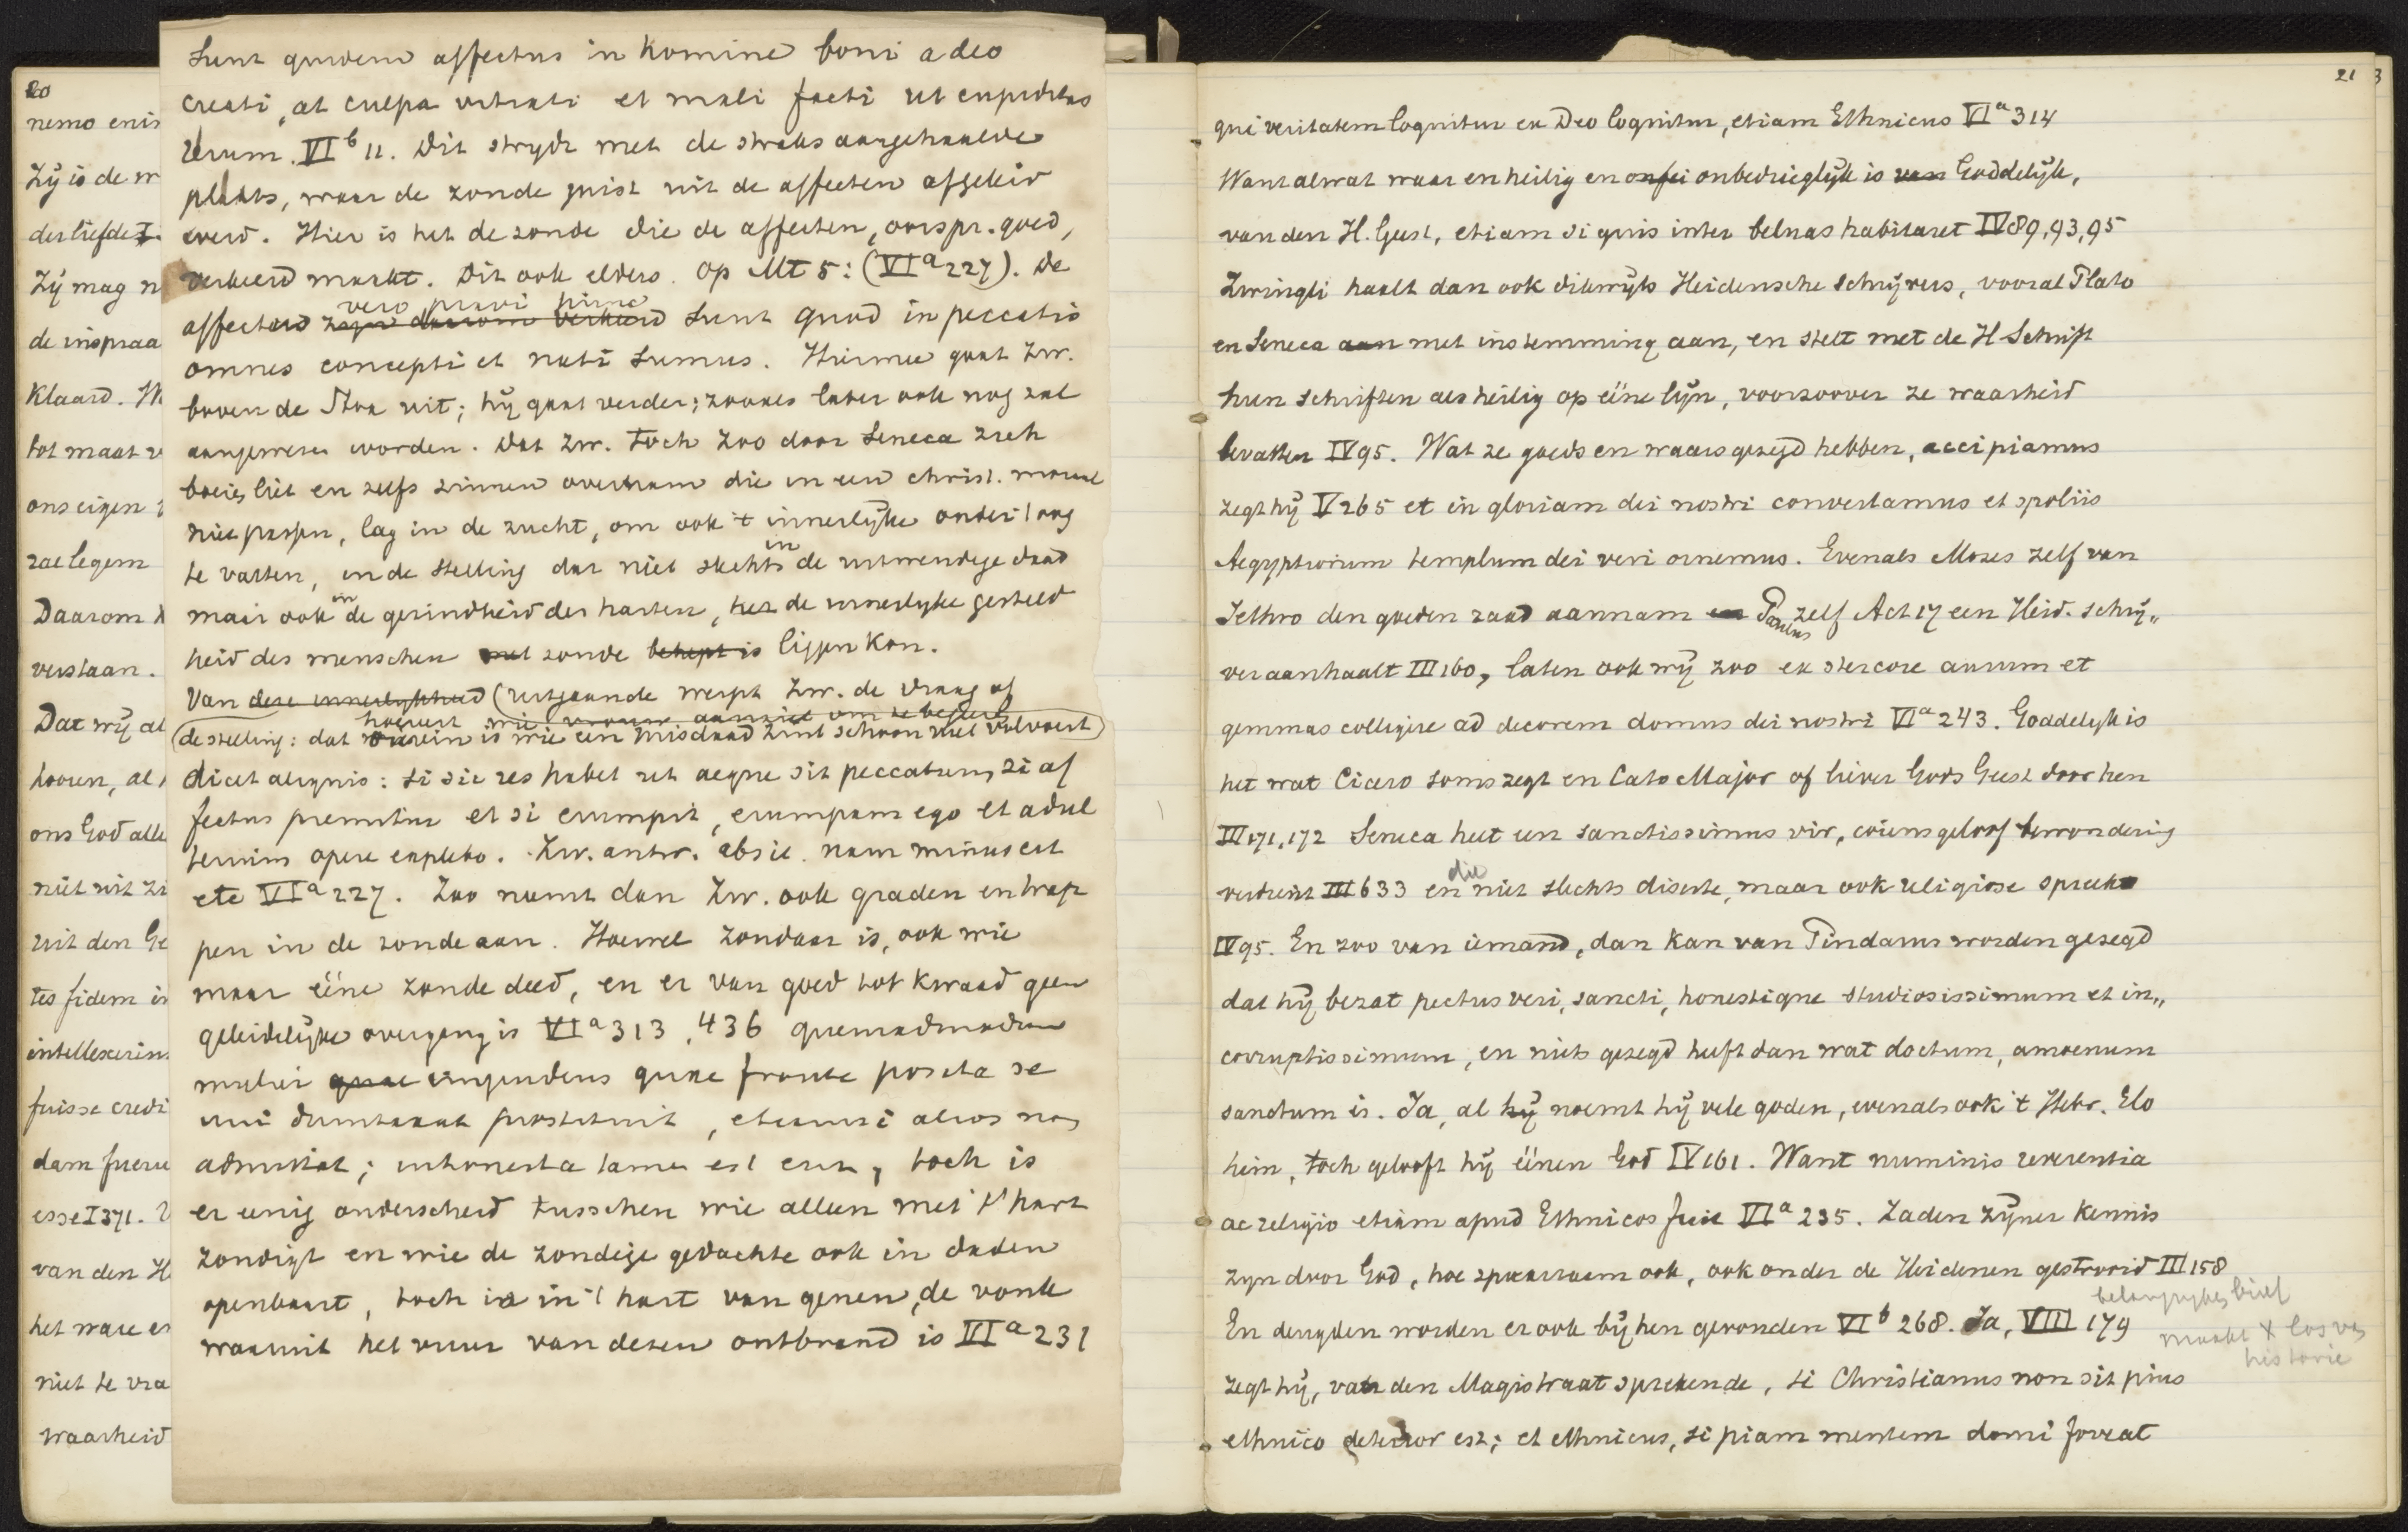 20
nemo enim
Zij is de w
der liefde
Zij mag n
de inspraa
klaard. W
tot maat v
ons eigen
rae legem
Daarom h
verstaan.
Dat wij al
hooren, al
ons God alle
niet uit zi
uit den Ge
tes fidem in
intellexerim
fuisse credi
dam fuere
esse I 371.
van den H
het ware en
niet te vra
waarheid
Sunt quidem affectus in homine boni a deo
creati, at culpa vitiati et mali facti ut cupiditas
rerum. VI b 11. Dit strydt met de straks aangehaalde
plaats, waar de zonde juist uit de affecten afgeleid
werd. Hier is het de zonde die de affecten, oorspr. goed,
verkeerd maakt. Dit ook elders. Op Mt 5: (VI a 227). De
vero pravi hinc
affectus zyn daarom verkeerd sunt quod in peccatis
omnes concepti et nati sumus. Hiermee gaat Zw.
boven de Stoa uit; hij gaat verder; zooals later ook nog zal
aangewezen worden. Dat Zw. toch zoo door Seneca zich
boeien liet en zelfs zinnen overnam die in een christ. moraal
niet passen, lag in de zucht, om ook 't innerlijke onder 't oog
te vatten, in de stelling dat niet slechts in de uitwendige daad
maar ook in de gezindheid des harten, het de innerlyke gesteld
heid des menschen met zonde behept is liggen kon.
Van deze innerlijkheid (uitgaande werpt Zw. de vraag of
hoeveel wie vrouw aanziet om te begeeren
(de stelling: dat is wie een misdaad zint schoon niet volvoert)
dicet aliquis: si sic res habet ut aeque sit peccatum, si af
fectus premitur et si erumpit, erumpam ego et adul
terium opere explebo. Zw. antw. absit. nam minus est
etc VI a 227. Zoo neemt dan Zw. ook graden en trap
pen in de zonde aan. Hoewel zondaar is, ook wie
maar ééne zonde deed, en er van goed tot kwaad geen
geleidelijke overgang is VI a 313, 436 quemadmodum
mulier quae impudens quae fronte posita se
uni dumtaxat prostituit, etiamsi alios non
admittat; inhonesta tamen est etc, toch is
er eenig onderscheid tusschen wie alleen met 't hart
zondigt en wie de zondige gedachte ook in daden
openbaart, toch is in 't hart van genen, de vonk
waaruit het vuur van dezen ontbrand is VI a 231
21
3
qui veritatem loquitur ex Deo loquitur, etiam Ethnicus VI a 314
Want al wat waar en heilig en onfei onbedrieglijk is van Goddelijk,
van den H. Geest, etiam si quis inter beluas habitaret IV 89, 93, 95
Zwingli haalt dan ook dikwijls Heidensche schrijvers, vooral Plato
en Seneca aan met instemming aan, en stelt met de H Schrift
hun schriften als heilig op ééne lijn, voorzoover ze waarheid
bevatten IV 95. Wat ze goeds en waars gezegd hebben, accipiamus
zegt hij V 265 et in gloriam dei nostri convertamus et spoliis
Aegyptiorum templum dei veri ornemus. Evenals Mozes zelf van
Jethro den goeden raad aannam en Paulus zelf Act 17 een Heid. schrij„
ver aanhaalt III 160, laten ook wij zoo ex stercore aurum et
gemmas colligere ad decorem domus dei nostri VI a 243. Goddelijk is
het wat Cicero soms zegt en Cato Major of liever Gods Geest door hen
III 171, 172 Seneca heet een sanctissimus vir, wiens geloof bewondering
verdient III 633 en die niet slechts diserte, maar ook religiose spreekt
IV 95. En zoo van iemand, dan kan van Pindarus worden gezegd
dat hij bezat pectus veri, sancti, honestique studiosissimum et in„
corruptissimum, en niets gezegd heeft dan wat doctum, amoenum
sanctum is. Ja, al hij noemt hij vele goden, evenals ook 't Hebr. Elo
him, toch gelooft hij éénen God IV 161. Want numinis reverentia
ac religio etiam apud Ethnicos fuit VI a 235. Zaden zijner kennis
zyn door God, hoe spaarzaam ook, ook onder de Heidenen gestrooid III 158
belangrykes brief
En deugden worden er ook bij hen gevonden VI b 268. Ja, VIII 179
maakt X los van
historie
zegt hij, van den Magistraat sprekende, si Christianus non sit pius
ethnico deterior est; et ethnicus, si piam mentem domi foveat